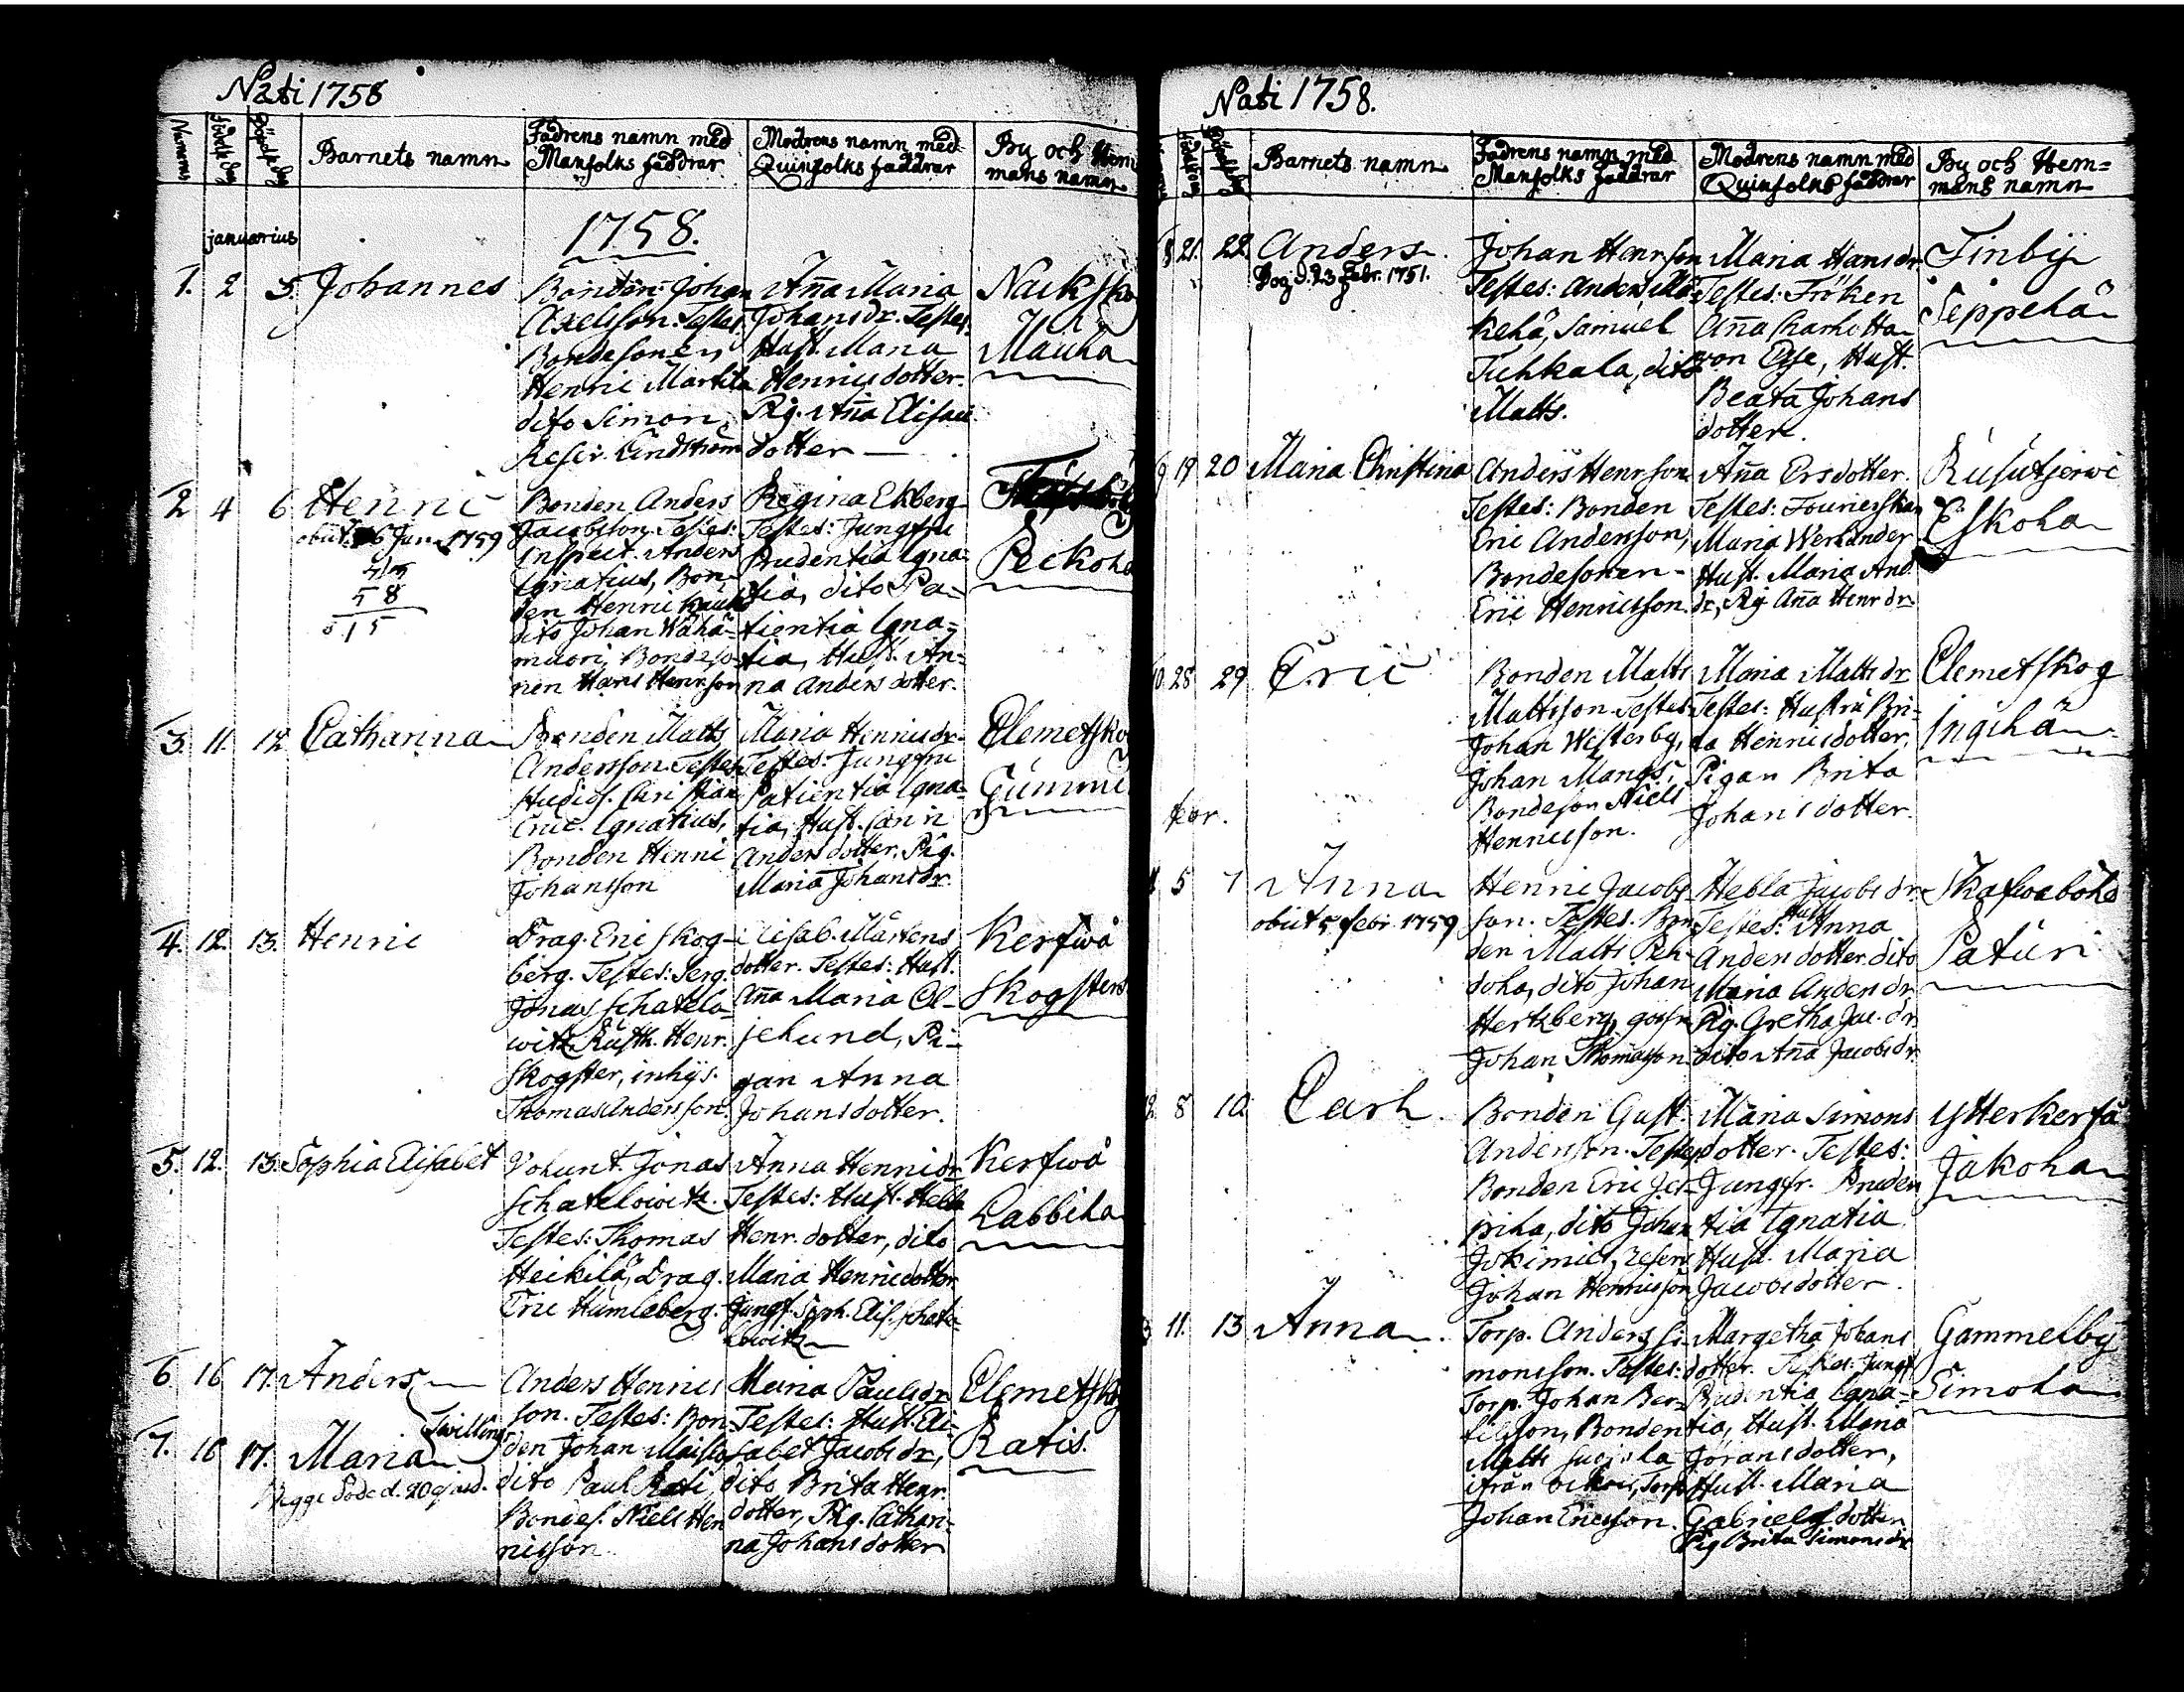 Nati 1758
Barnets namn
Fadrens namn med
Manfolks faddrar
Modrens namn med
Quinfolks faddrar
By och Hem
mans namn
1758.
januarius
1. 2 5. Johannes
Bonden Johan
Axelsson. Testes
Bondesonen
Henric Martila
dito Simon,
Reser. Lindström
Anna Maria
Johansdr. Testes.
Hust. Maria
Henricsdotter.
Pig. Anna
dotter
Maula
2 4 6 Henric
obiit 16 Jun. 1759
58
Bonden Anders
Jacobsson. Testes:
Inspect. Anders
Ignatius, Bon-
den Henric
dito Johan Wähä-
maori, Bondeso-
nen Hans Henr.son
Regina Ekberg
Testes: Jungfru
Prudentia Igna-
tia, dito Pa-
tientia Igna-
tia, Hust. An-
na Anders dotter.
Peckola
3. 11. 12. Catharina
Bonden Matts
Andersson. Testes
Studios. Christian
Eric. Ignatius,
Bonden Henric
Johansson
Maria Henricsdr.
Testes: Jungfru
Patientia Igna-
tia, Hust. Carin
Anders dotter. Pig.
Maria Johansdr.
Clemetsko
Gummi
4. 12. 13. Henric
Drag. Eric Skog-
berg. Testes: Serg.
Jonas Schatelo-
witz, Rusth. Henr.
Skogster, inhys.
Thomas Andersson.
Elisab. Mårtens
dotter. Testes: Hust.
Anna Maria Ol-
jelund, Pi-
gan Anna
Johansdotter.
Kerfwå
Skogsters
5. 12. 13. Sophia Elisabet
Volunt. Jonas
Schatelowitz.
Testes: Thomas
Heikilä, Drag.
Eric Humleberg.
Anna Henricsdr
Testes: Hust. Hebla
Henr. dotter, dito
Maria Henricsdotter
Jungf. Soph. Elis. Schate-
lowitz
Kerfwå
Labbila
6. 16 17. Anders
Twillingr
7. 16 17. Maria
Bägge döde d. 20 ejusd.
Anders Henrics
son. Testes: Bon-
den Johan
dito Paul Rati,
Bondes. Niels Hen
ricsson
Maria Paulsdr
Testes: Hust. Eli-
sabet Jacobsdr,
dito Brita Henr.
dotter, Pig. Cathari-
na Johansdotter
Clemetskog
Ratis.
Nati 1758.
Barnets namn
Fadrens namn med
Manfolks faddrar
Modrens namn med
Quinfolks faddrar
By och Hem-
mans namn
8 21. 22. Anders.
Dog d. 23 Febr. 1751.
Johan Henr.son
Testes: Anders Mä-
kelä, Samuel
Tuhkala, dito
Matts.
Maria Hansdr.
Testes: Fröken
Anna Charlotta
von Esse, Hust.
Beata Johans
dotter.
Finby
Seppelä
9 19 20 Maria Christina
Anders Henr.son
Testes: Bonden
Eric Andersson,
Bondesonen
Eric Henricsson.
Anna Ersdotter.
Testes: Fourierskan
Maria Werlander
Hust. Maria And.
dr, Pig Anna Henr dr
Rusutjerwi
Eskola
10. 28 29 Eric
Bonden Matts
Mattsson. Testes
Johan Westerby,
Johan Mangs,
Bondeson Niels
Henricsson.
Maria Matts dr
Testes: Hustru Bri-
ta Henricsdotter,
Pigan Brita
Johansdotter.
Clemetskog
Ingilä
febr.
5 7 Anna
obiit 5 febr. 1759
Henric Jacobs-
son. Testes. Bon
den Matts Pek-
kola, dito Johan
Hertzberg,
Johan Thomasson
Hebla Jacobs dr
Testes: Hust Anna
Anders dotter. dito
Maria Anders dr.
Pig. Gretha Jac. dr
dito Anna Jacobsdr
Skafwaböhle
Paturi
12. 8 10. Carl.
Bonden Gust.
Andersson. Testes
Bonden Eric Jer-
pila, dito Johan
Jokimies, reserv
Johan Henricsson
Maria Simons
dotter. Testes:
Jungfr. Pruden
tia Ignatia
Hust. Maria
Jacobsdotter.
Ytterkerfå
Jakola
11. 13 Anna.
Torp. Anders Si-
monsson. Testes:
Torp. Johan Ber-
tilsson, Bonden
Matts
ifrån
Johan Ericsson.
Margetha Johans
dotter. Testes: Jungf
Prudentia Igna-
tia, Hust. Maria
Jörans dotter,
Hust. Maria
Gabriels dotter
Pig Brita Simonsdr
Gammelby
Simola